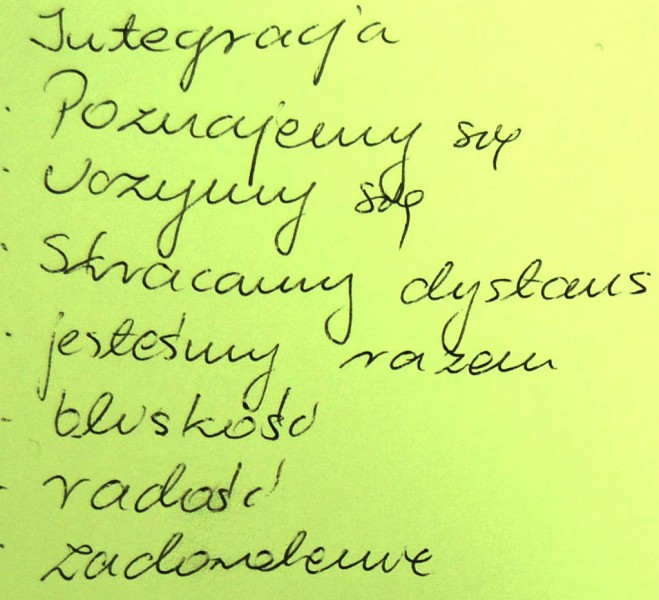 Integracja
- Poznajemy się
- Uczymy się
- Skracamy dystans
- jesteśmy razem
- bliskość
- radość
- zadowolenie